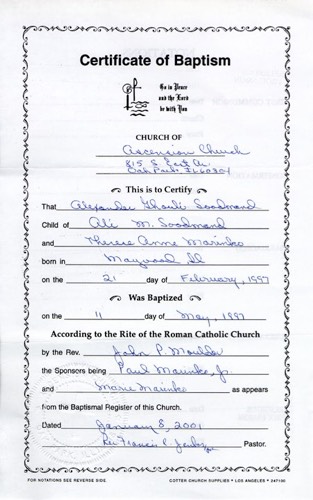 Certificate of Baptism
Go in Peace
and the Lord
be with You
CHURCH OF
Ascension Church
815 S. East Av.
Oak Park, IL 60304
This is to Certify
That Alexander Ghouli Soodmand
Child of Ali M. Soodmand
and Therese Anne Marinko
born in Maywood, Il
on the 21 day of February, 1997
Was Baptized
on the 11 day of May, 1997
According to the Rite of the Roman Catholic Church
by the Rev. John P. Moulder
the Sponsors being Paul Marinko, Jr.
and Marie Marinko as appears
from the Baptismal Register of this Church.
Dated January 8, 2001
Rev. Francis C. Pastor.
FOR NOTATIONS SEE REVERSE SIDE
COTTER CHURCH SUPPLIES • LOS ANGELES • 247100